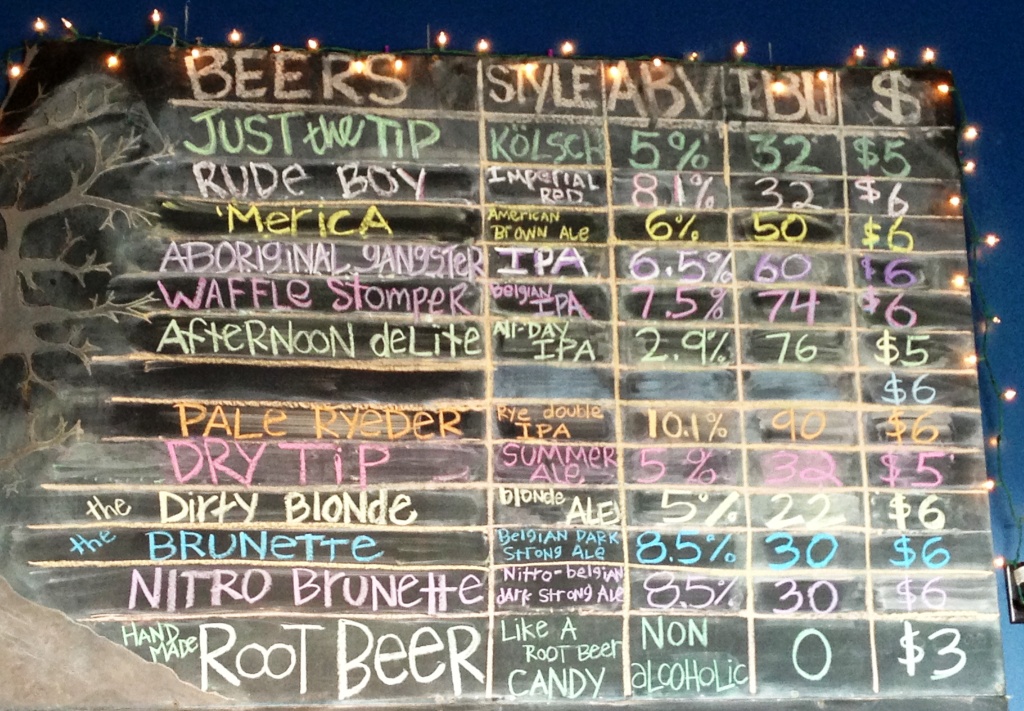 BEERS STYLE ABV IBU $
JUST the TIP KÖLSCH 5% 32 $5
RUDE BOY IMPERIAL RED 8.1% 32 $6
'MERICA AMERICAN BROWN ALE 6% 50 $6
ABORIGINAL GANGSTER IPA 6.5% 60 $6
WAFFLE STOMPER Belgian IPA 7.5% 74 $6
AFTERNOON deLITE All-DAY IPA 2.9% 76 $5
$6
PALE RYEDER Rye double IPA 10.1% 90 $6
DRY TIP SUMMER ALE 5% 32 $5
the Dirty Blonde blonde ALE 5% 22 $6
the BRUNETTE BELGIAN DARK STRONG ALE 8.5% 30 $6
NITRO BRUNETTE Nitro-belgian dark Strong Ale 8.5% 30 $6
HAND MADE ROOT BEER LIKE A ROOT BEER CANDY NON aLCOHOLIC 0 $3